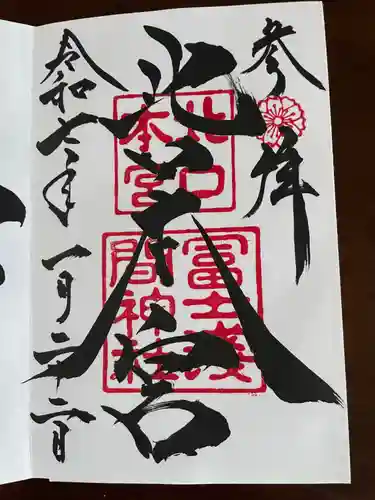 参拝
北口本宮
北口
本宮
冨士浅
間神社
令和六年一月二十二日